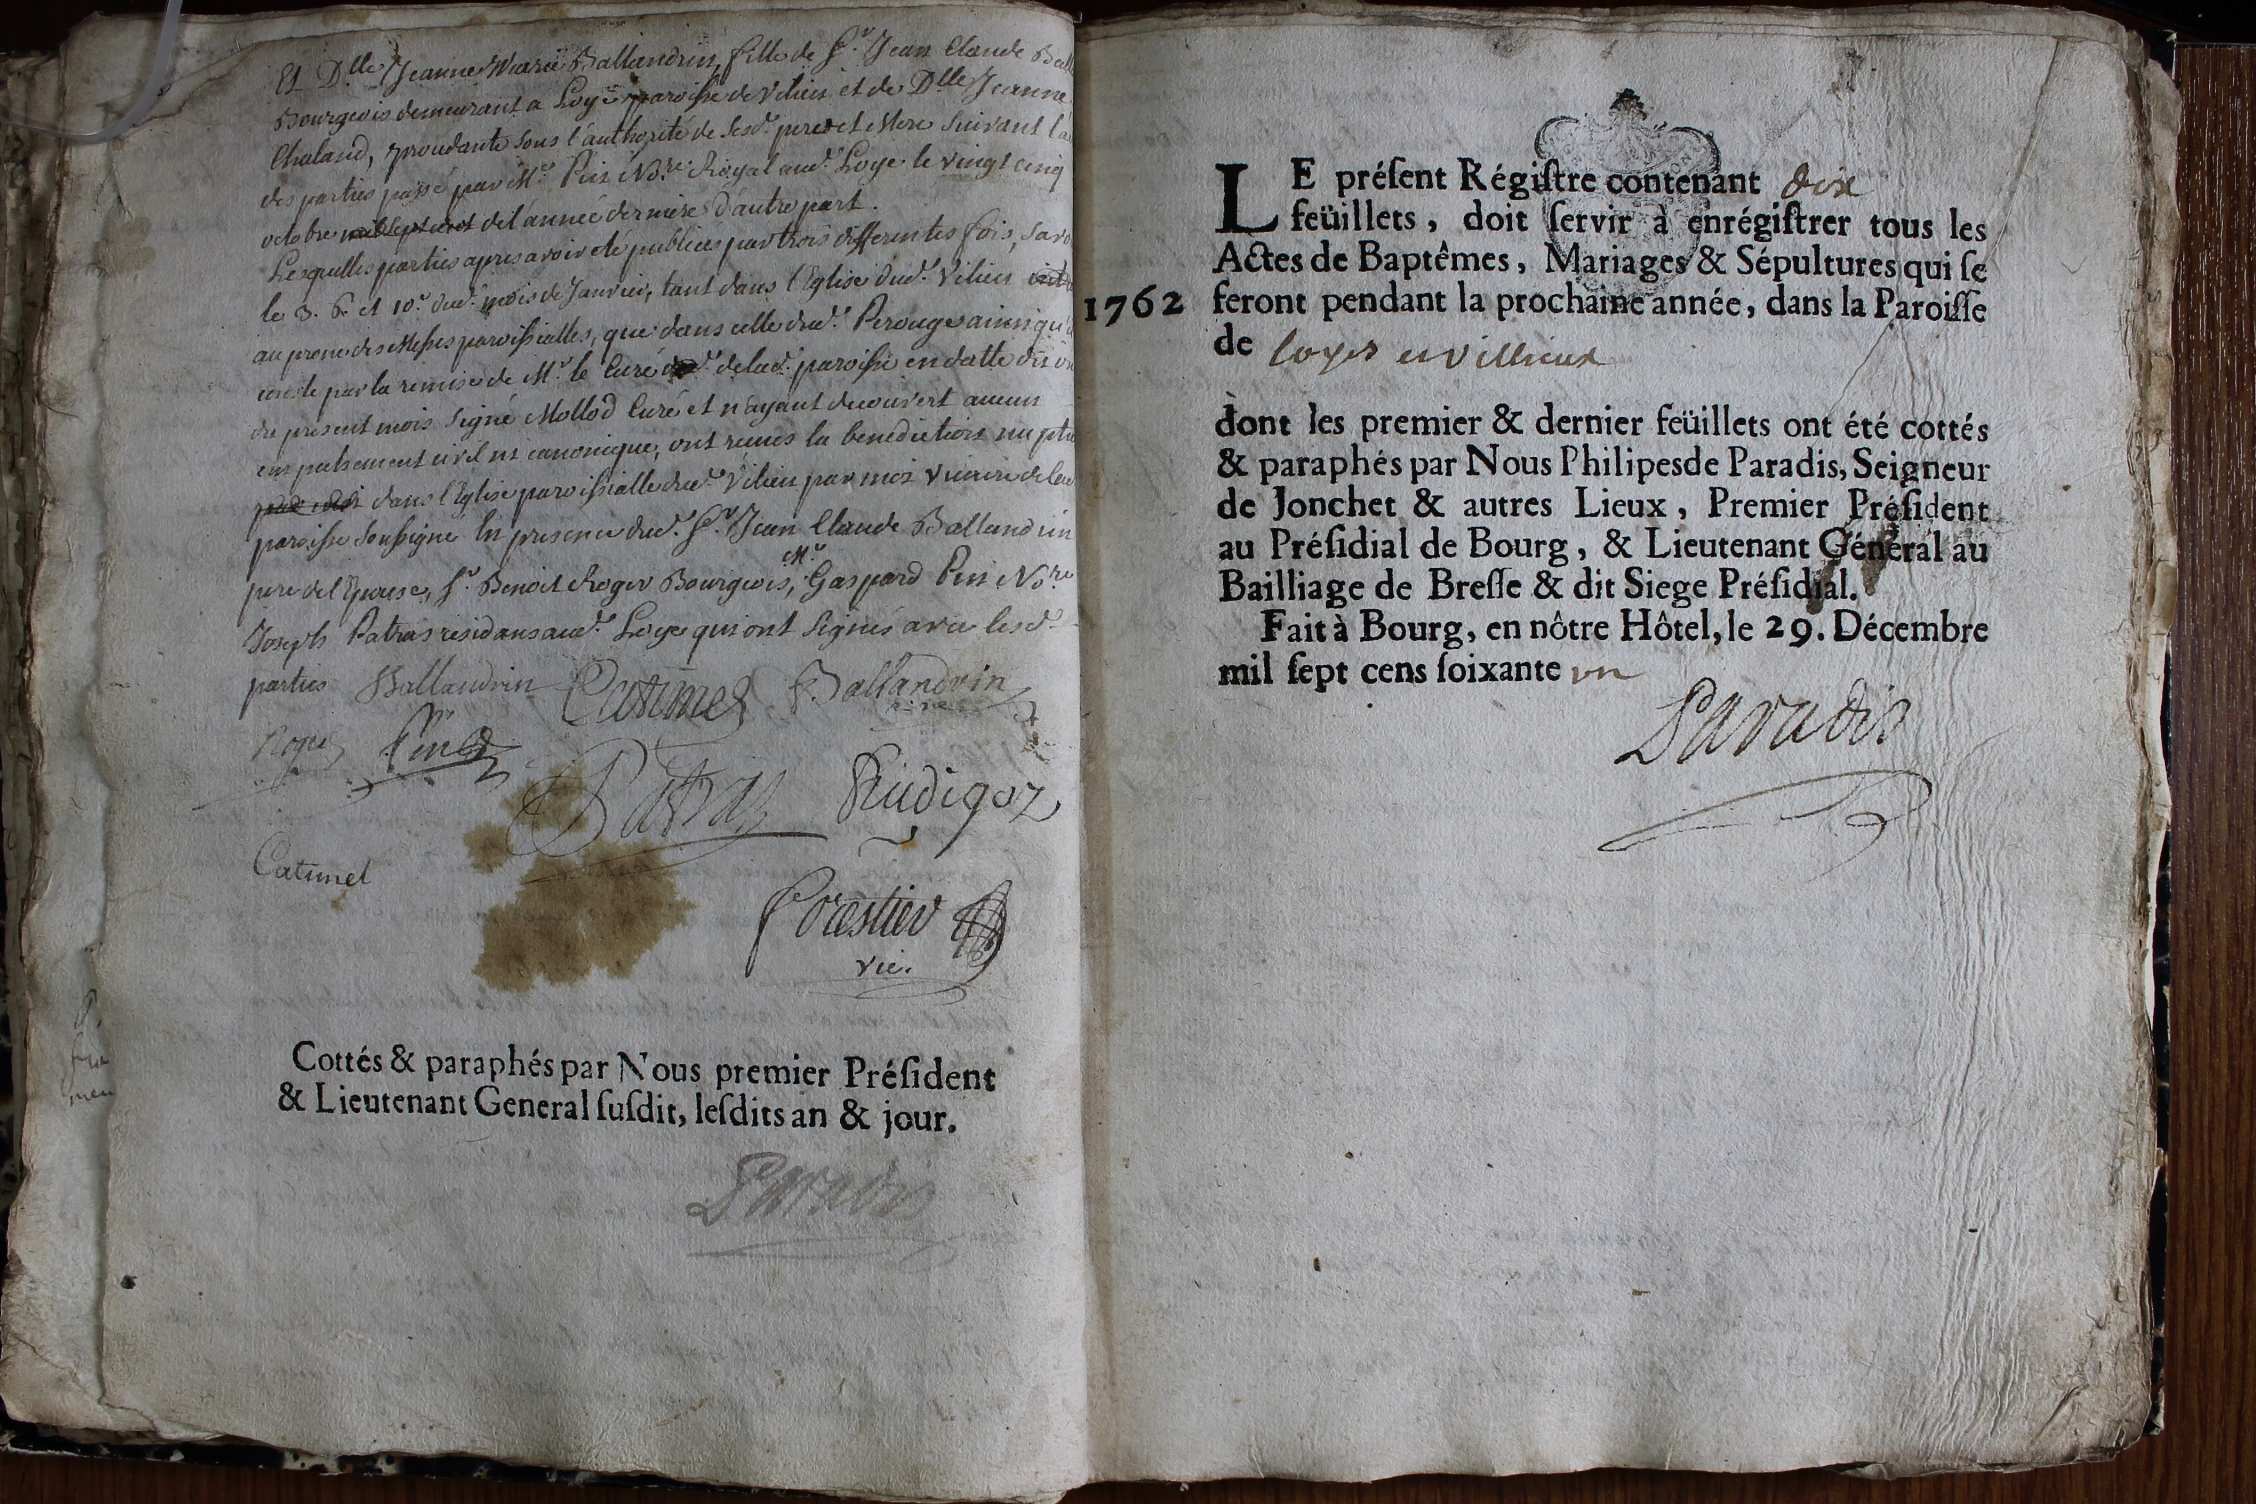 Et Dlle Jeanne Marie Ballandrin, fille de Sr. Jean Claude
Bourgeois demeurant a Loye paroisse de Vilieu et de Dlle Jeanne
Chaland, proudante sous l'authorité de sesd. pere et Mere suivant
des parties passé par Me. Pin No.re Royal aud. Loye le vingt cinq
octobre mil sept cent de l'année derniere d'autre part.
Lesquelles parties apres avoir eté publiées par trois differentes fois,
le 3. 6. et 10.e dud. mois de Janvier, tant dans l'Eglise dud. Vilieu
au prone des Messes paroissialles, que dans celle dud. Perouge ainsi
conste par la remise de Mr. le Curé delad. paroisse en datte du
du present mois signé Mollod Curé et n'ayant decouvert aucun
empechement civil ni canonique, ont recues la benediction
dans l'Eglise paroissialle dud. Vilieu par moi Vicaire de
paroisse soussigné En presence dud. Sr. Jean Claude Ballandrin
pere de l'Epouse, Sr. Benoit Roger Bourgeois, Me. Gaspard Pin No.re
Joseph Patras residans aud. Loye qui ont signés avec lesd.
parties Ballandrin Catimel Ballandrin
Roger Pin
Patras Rudigoz
Catimel
Forestier
vic.
Cottés & paraphés par Nous premier Préſident
& Lieutenant General ſuſdit, leſdits an & jour.
Paradis
LE préſent Régiſtre contenant dix
feüillets, doit ſervir à enrégiſtrer tous les
Actes de Baptêmes, Mariages & Sépultures qui ſe
1762 feront pendant la prochaine année, dans la Paroiſſe
de loyes et villieux
dont les premier & dernier feüillets ont été cottés
& paraphés par Nous Philipes de Paradis, Seigneur
de Jonchet & autres Lieux, Premier Préſident
au Préſidial de Bourg, & Lieutenant Général au
Bailliage de Breſſe & dit Siege Préſidial.
Fait à Bourg, en nôtre Hôtel, le 29. Décembre
mil ſept cens ſoixante un
Paradis